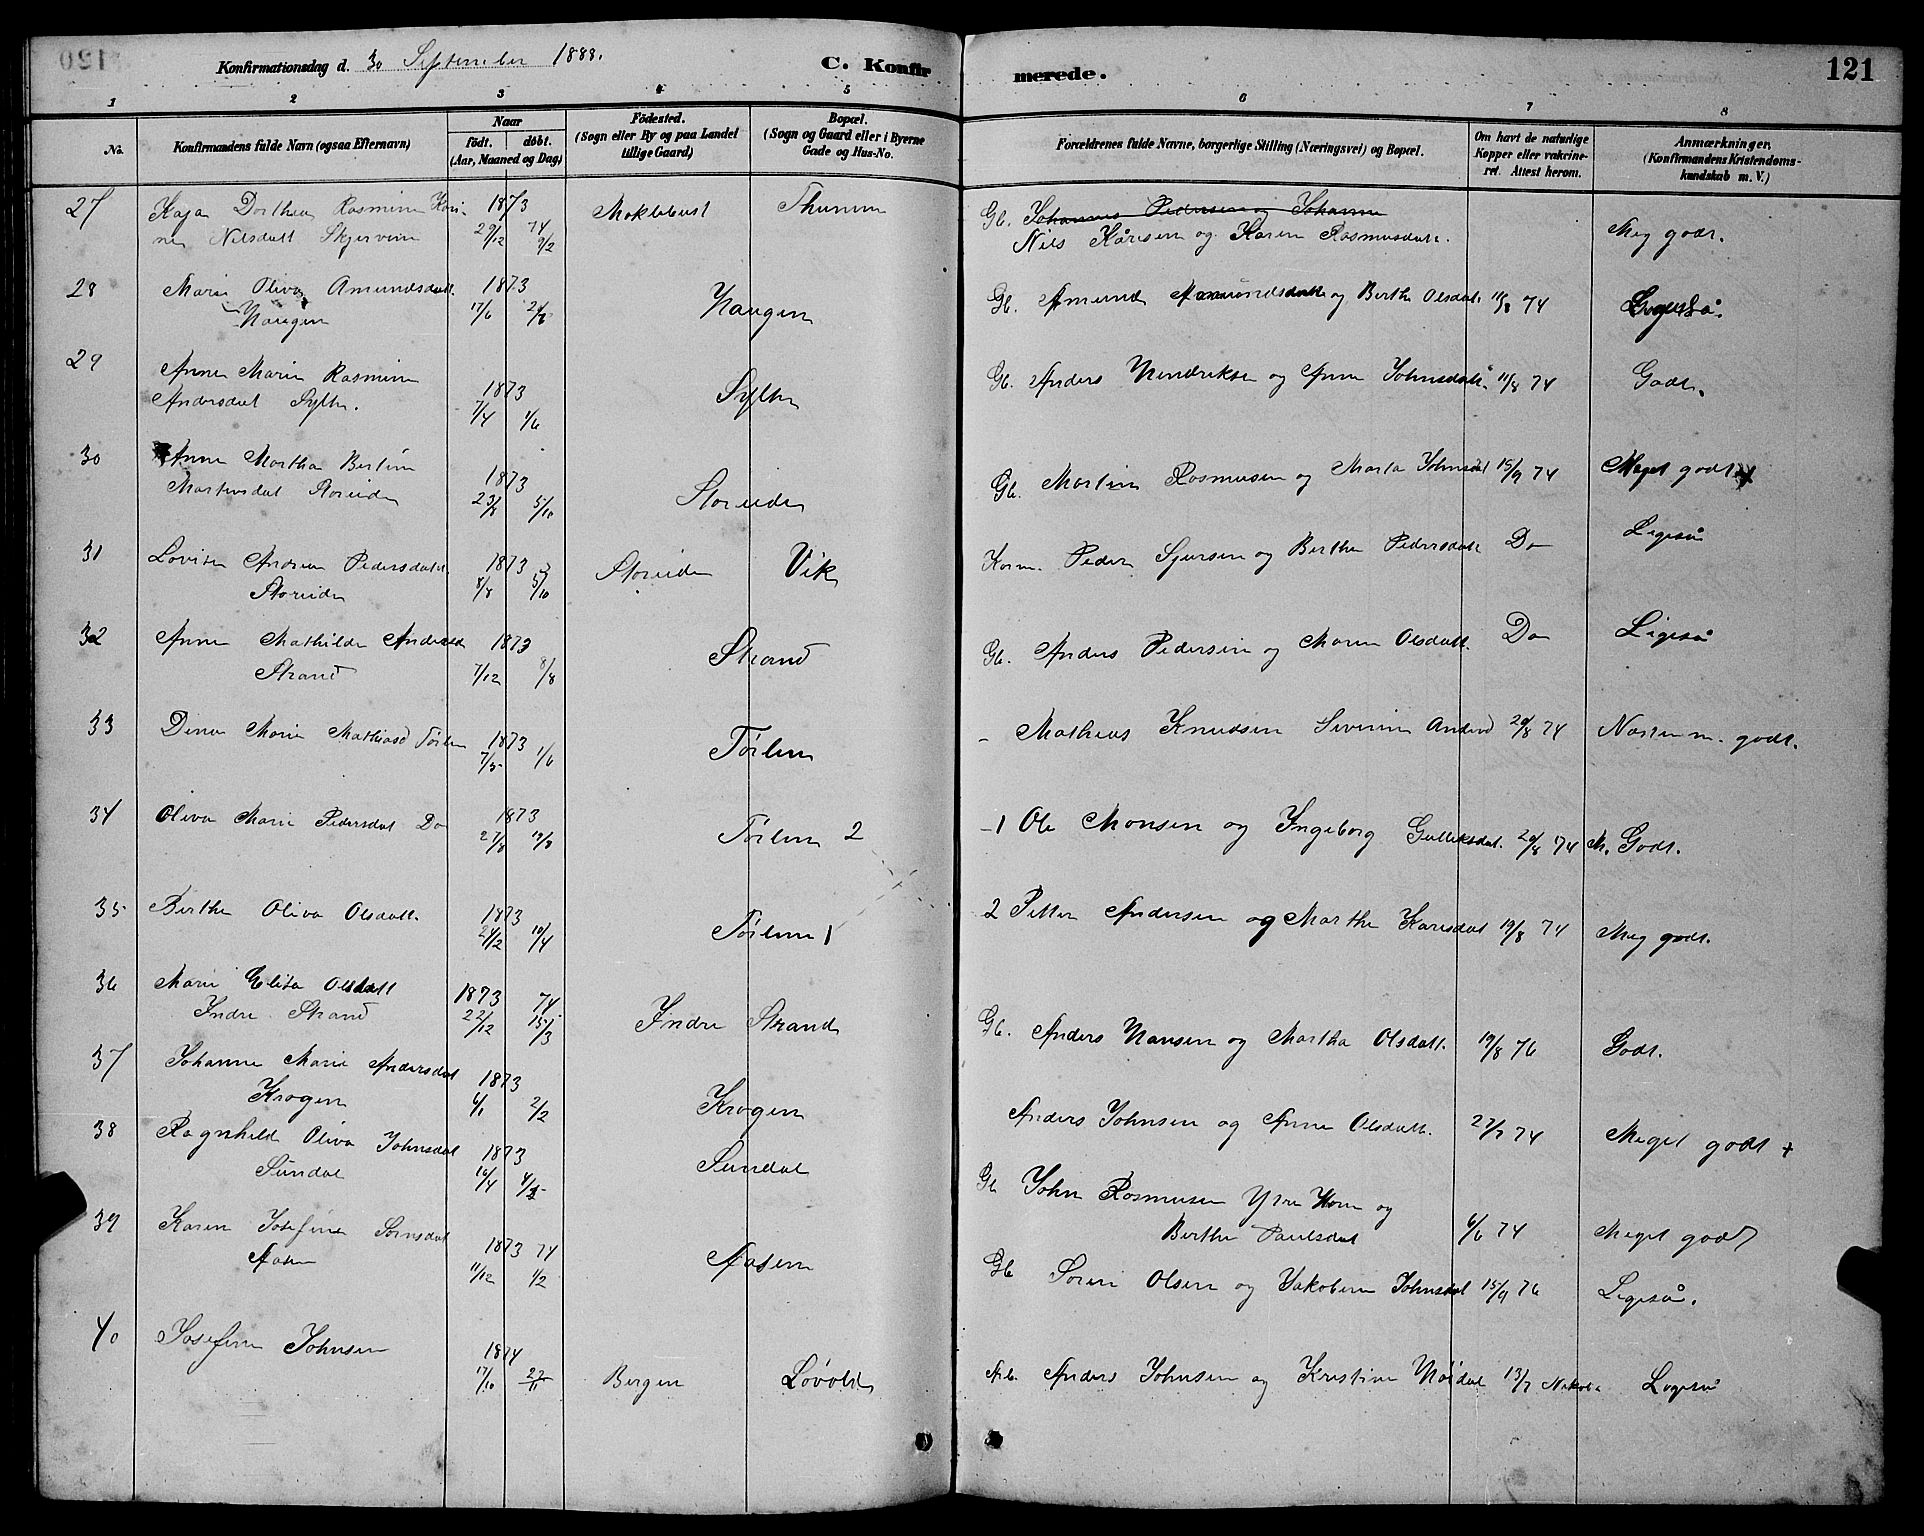 Konfirmationsdag d. 30 September 1888.
C. Konfirmerede.
121
1 2 3 4 5 6 7 8
No.
Konfirmandens fulde Navn (ogsaa Efternavn)
Naar
födt. döbt.
(Aar, Maaned og Dag)
Födested.
(Sogn eller By og paa Landet
tillige Gaard)
Bopæl.
(Sogn og Gaard eller i Byerne
Gade og Hus-No.
Forældrenes fulde Navne, borgerlige Stilling (Næringsvei) og Bopæl.
Om havt de naturlige
Kopper eller vakcine-
ret. Attest herom.
Anmærkninger.
(Konfirmandens Kristendoms-
kundskab m. V.)
27 Kaja Dorthea Rasmine Kari- 1873 Moklebust Thunem Gb. Johannes Pedersen og Johanne
ne Nilsdatt Skjervem 29/12 74 9/2 Nils Kåresen og Karen Rasmusdatt. Meg godt.
28 Marie Oliva Amundsdatt. 1873
Haugen 17/6 2/8 Haugen Gb. Amund Amundsdatt og Berthe Olsdatt. 11/8 74 Ligeså.
29 Anne Marie Rasmine
Andersdat Sylte. 1873 7/4 1/6 Sylte Gb. Anders Hendriksen og Anne Johnsdatt 11/8 74 Godt.
30 Anne Martha Bertine
Martinsdat Storeide 1873 23/8 5/10 Storeide Gb. Martin Rasmusen og Marta Johnsdat 15/9 74 Meget godt +
31 Lovise Andrea Pedersdatt. 1873
Storeide 8/8 5/10 Storeide Vik Peder Sjursen og Berthe Pedersdatt Do Ligeså
32 Anne Mathilde Andersd 1873
Strand 7/12 8/8 Strand Gb. Anders Pedersen og Maren Olsdatt. Do Ligeså
33 Dina Marie Mathiasd Törlen 1873 7/5 1/6 Törlen - Mathias Knudsen Siverine Andersd 20/8 74 Næsten m. godt.
34 Oliva Marie Pedersdat Do 1873 27/8 19/9 Törlen 2 -1 Ole Monsen og Ingeborg Gulleksdat. 20/8 74 M. Godt.
35 Berthe Oliva Olsdatt. 1873 24/2 10/4 Törlen 1 2 Petter Andersen og Marthe Karesdat 19/8 74 Meg godt.
36 Marie Elisa Olsdatt
Indre Strand 1873 22/12 74 15/3 Indre Strand Gb. Anders Hansen og Martha Olsdatt. 19/8 76 Godt.
37 Johanne Marie Andersdat
Krogen 1873 6/1 2/2 Krogen Anders Johnsen og Anne Olsdatt. 27/7 74 Meget godt +
38 Ragnhild Oliva Johnsdat
Sundal 1873 16/4 Sundal Gb John Rasmusen Ytre Horn og
Berthe Paulsdat 6/6 74 Meget godt
39 Karen Josefine Sørnsdat
Aasen 1873 11/12 74 1/2 Aasen Gb Søren Olsen og Jakobine Johnsdat 15/9 76 Ligeså.
40 Josefine Johnsen 1874 17/10 22/11 Bergen Løvold Arb. Anders Johnsen og Kristine 13/7 Ligeså